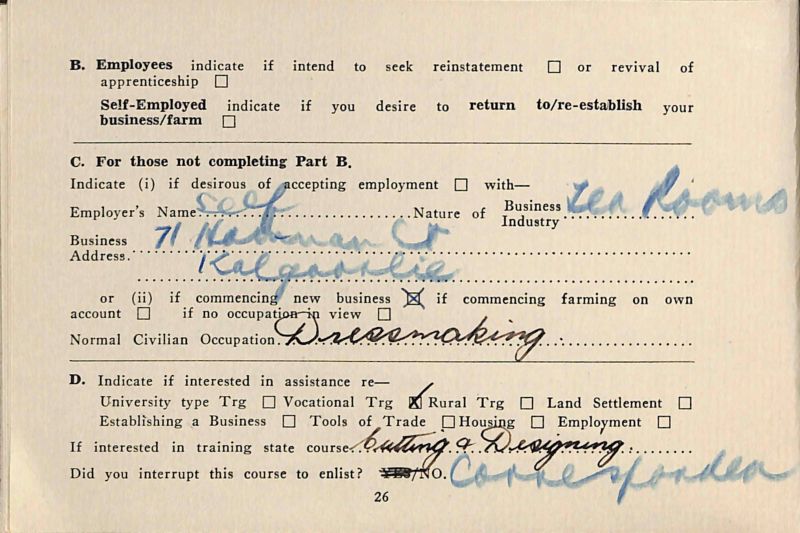 B. Employees indicate if intend to seek reinstatement ☐ or revival of
apprenticeship ☐
Self-Employed indicate if you desire to return to/re-establish your
business/farm ☐
C. For those not completing Part B.
Indicate (i) if desirous of accepting employment ☐ with—
Employer's Name self Nature of Business Industry Tea Rooms
Business Address. 71 Hannan St
Kalgoorlie
or (ii) if commencing new business ☒ if commencing farming on own
account ☐ if no occupation in view ☐
Normal Civilian Occupation. Dressmaking
D. Indicate if interested in assistance re—
University type Trg ☐ Vocational Trg ☒ Rural Trg ☐ Land Settlement ☐
Establishing a Business ☐ Tools of Trade ☐ Housing ☐ Employment ☐
If interested in training state course Cutting & Designing
Did you interrupt this course to enlist? YES/NO.
26